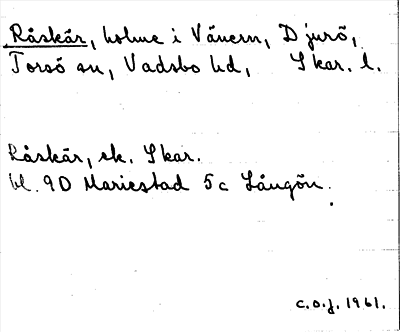 Råskär, holme i Vänern, Djurö,
Torsö sn, Vadsbo hd, Skar. l.
Råskär, ek. Skar.
bl. 9D Mariestad 5c Långön.
C.O.J. 1961.